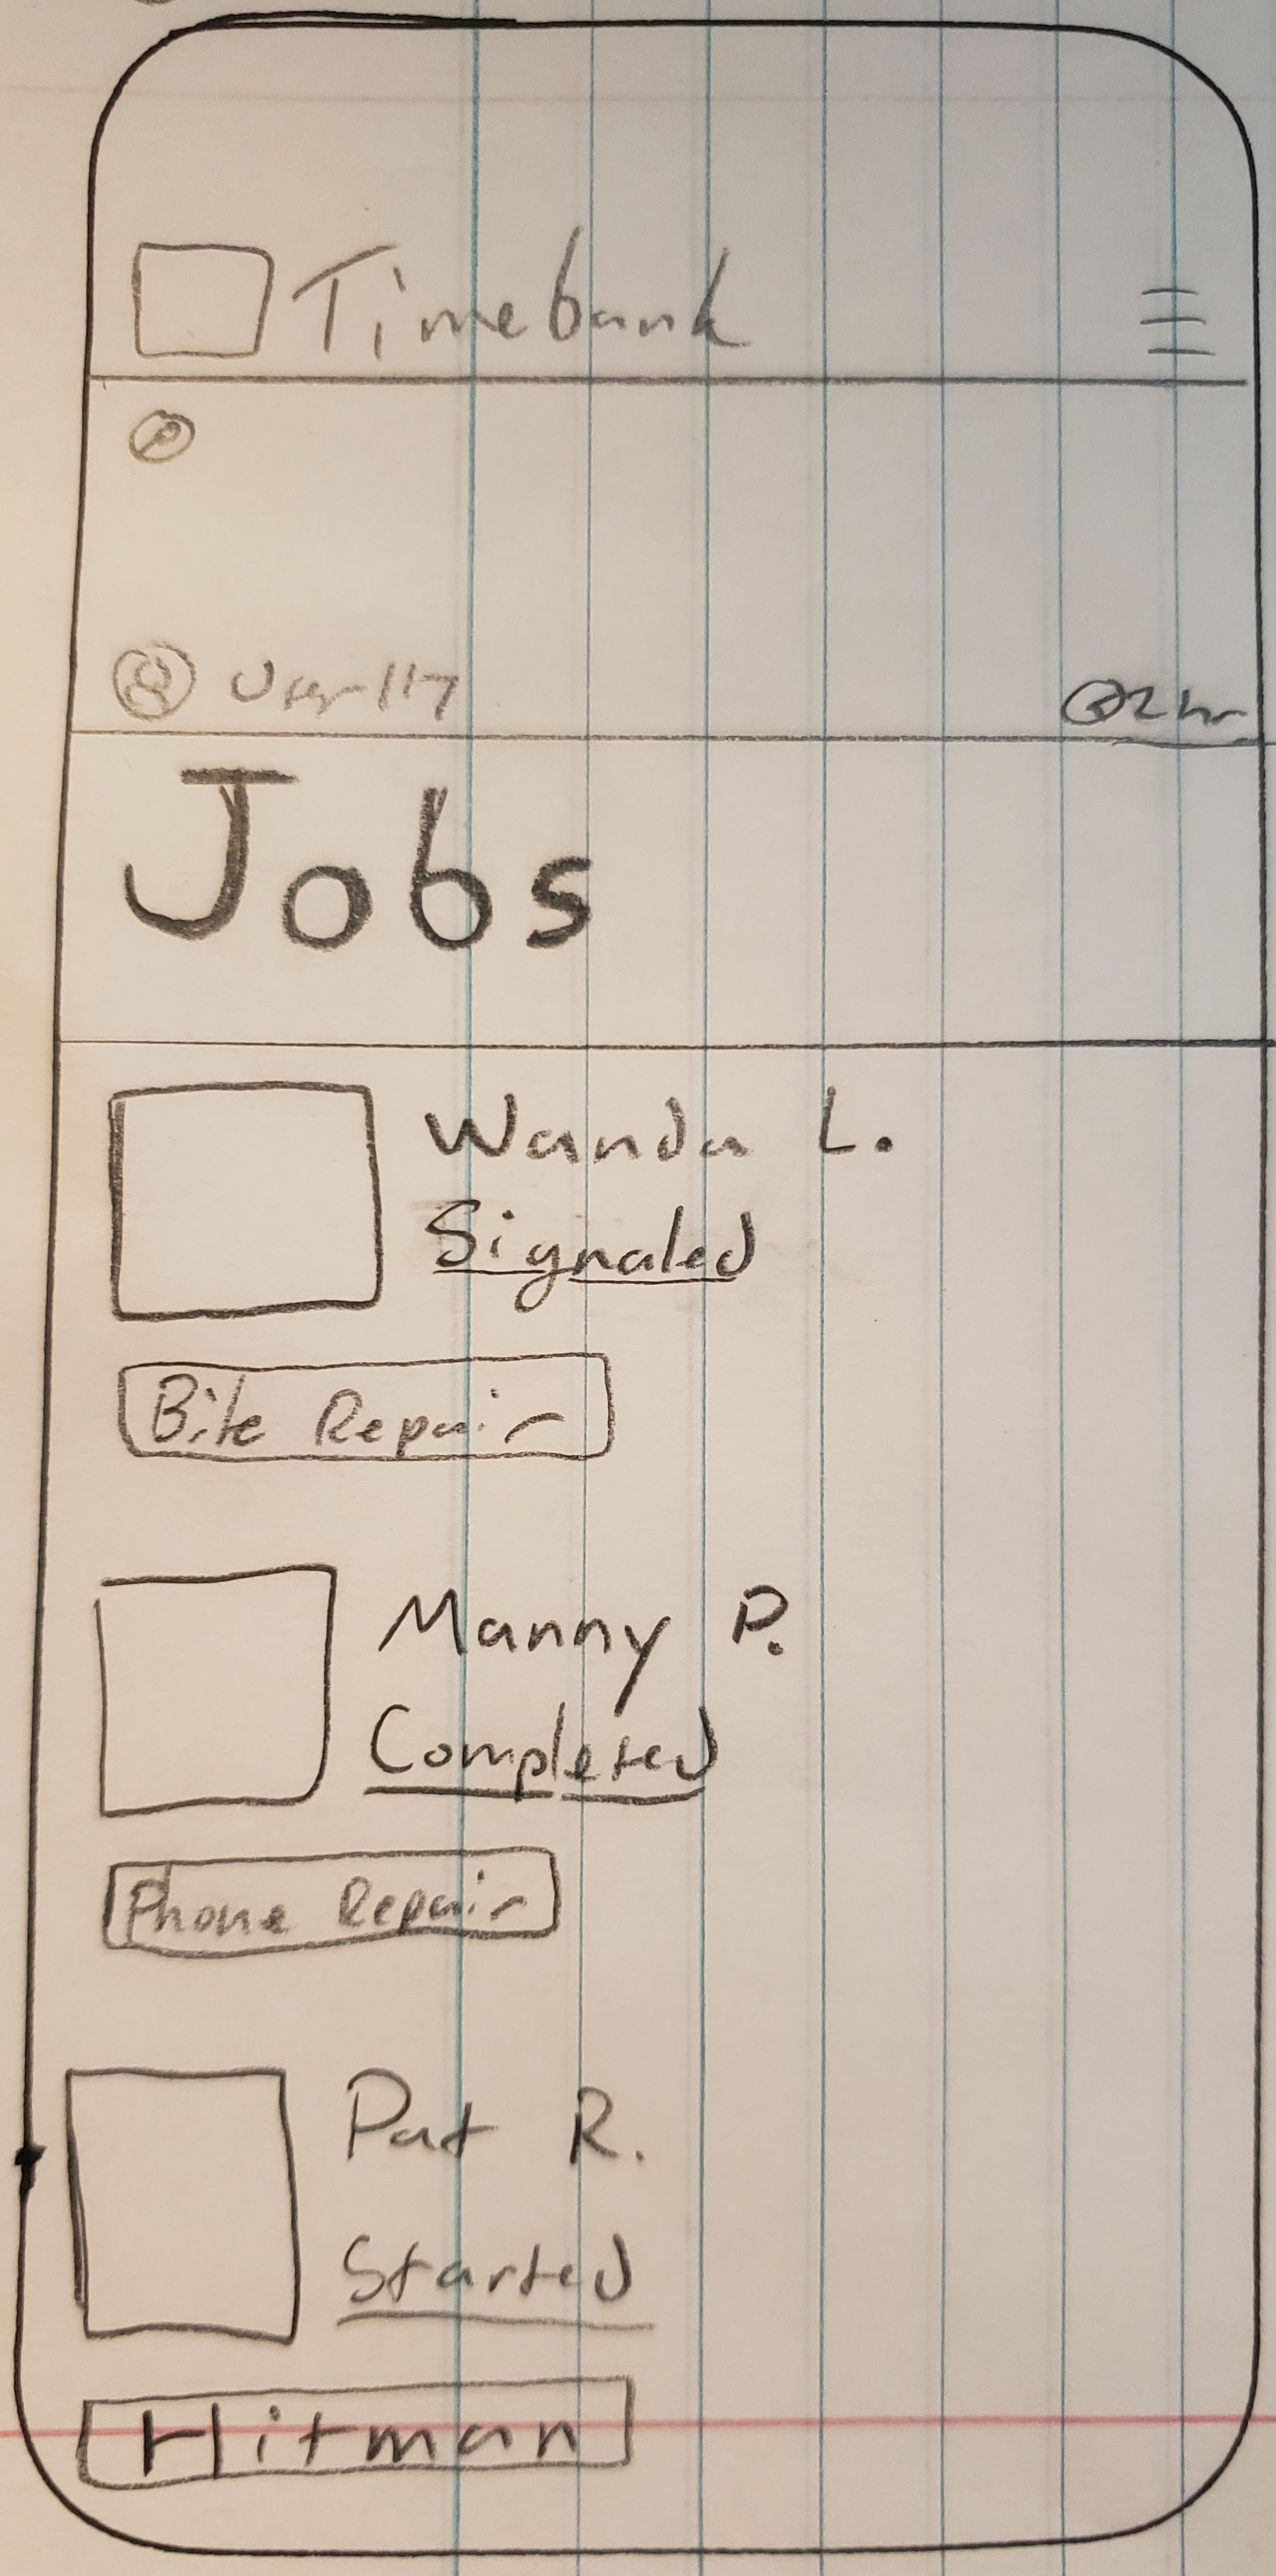 Timebank
User 117
2 hr
Jobs
Wanda L.
Signaled
Bike Repair
Manny P.
Completed
Phone Repair
Pat R.
Started
Hitman